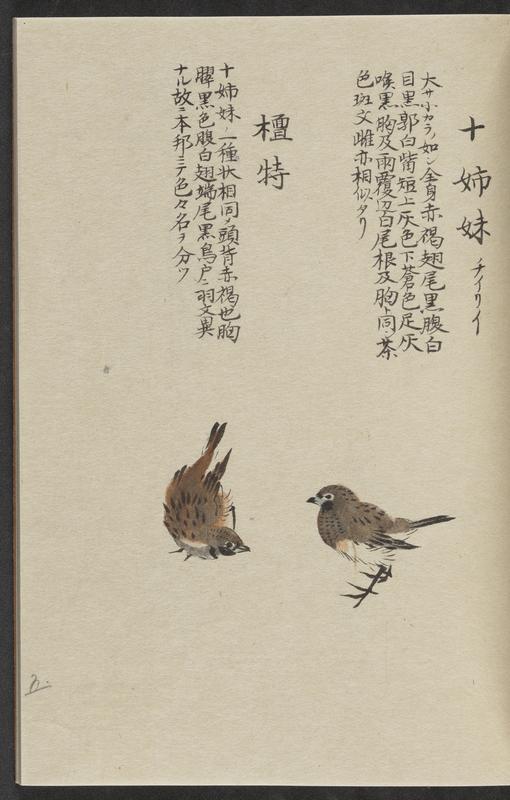 十姉妹 チイリイ
大サ小カラノ如シ全身赤褐翅尾黒腹白
目黒郭白觜短上灰色下蒼色足灰
喉黒胸及両覆辺白尾根及胸ト同シ茶
色斑文雌亦相似タリ
檀特
十姉妹ノ一種状相同メ頭背赤褐也胸
臎黒色腹白翅端尾黒鳥戸ニ羽文異
ナル故ニ本邦ニテ色々名ヲ分ツ